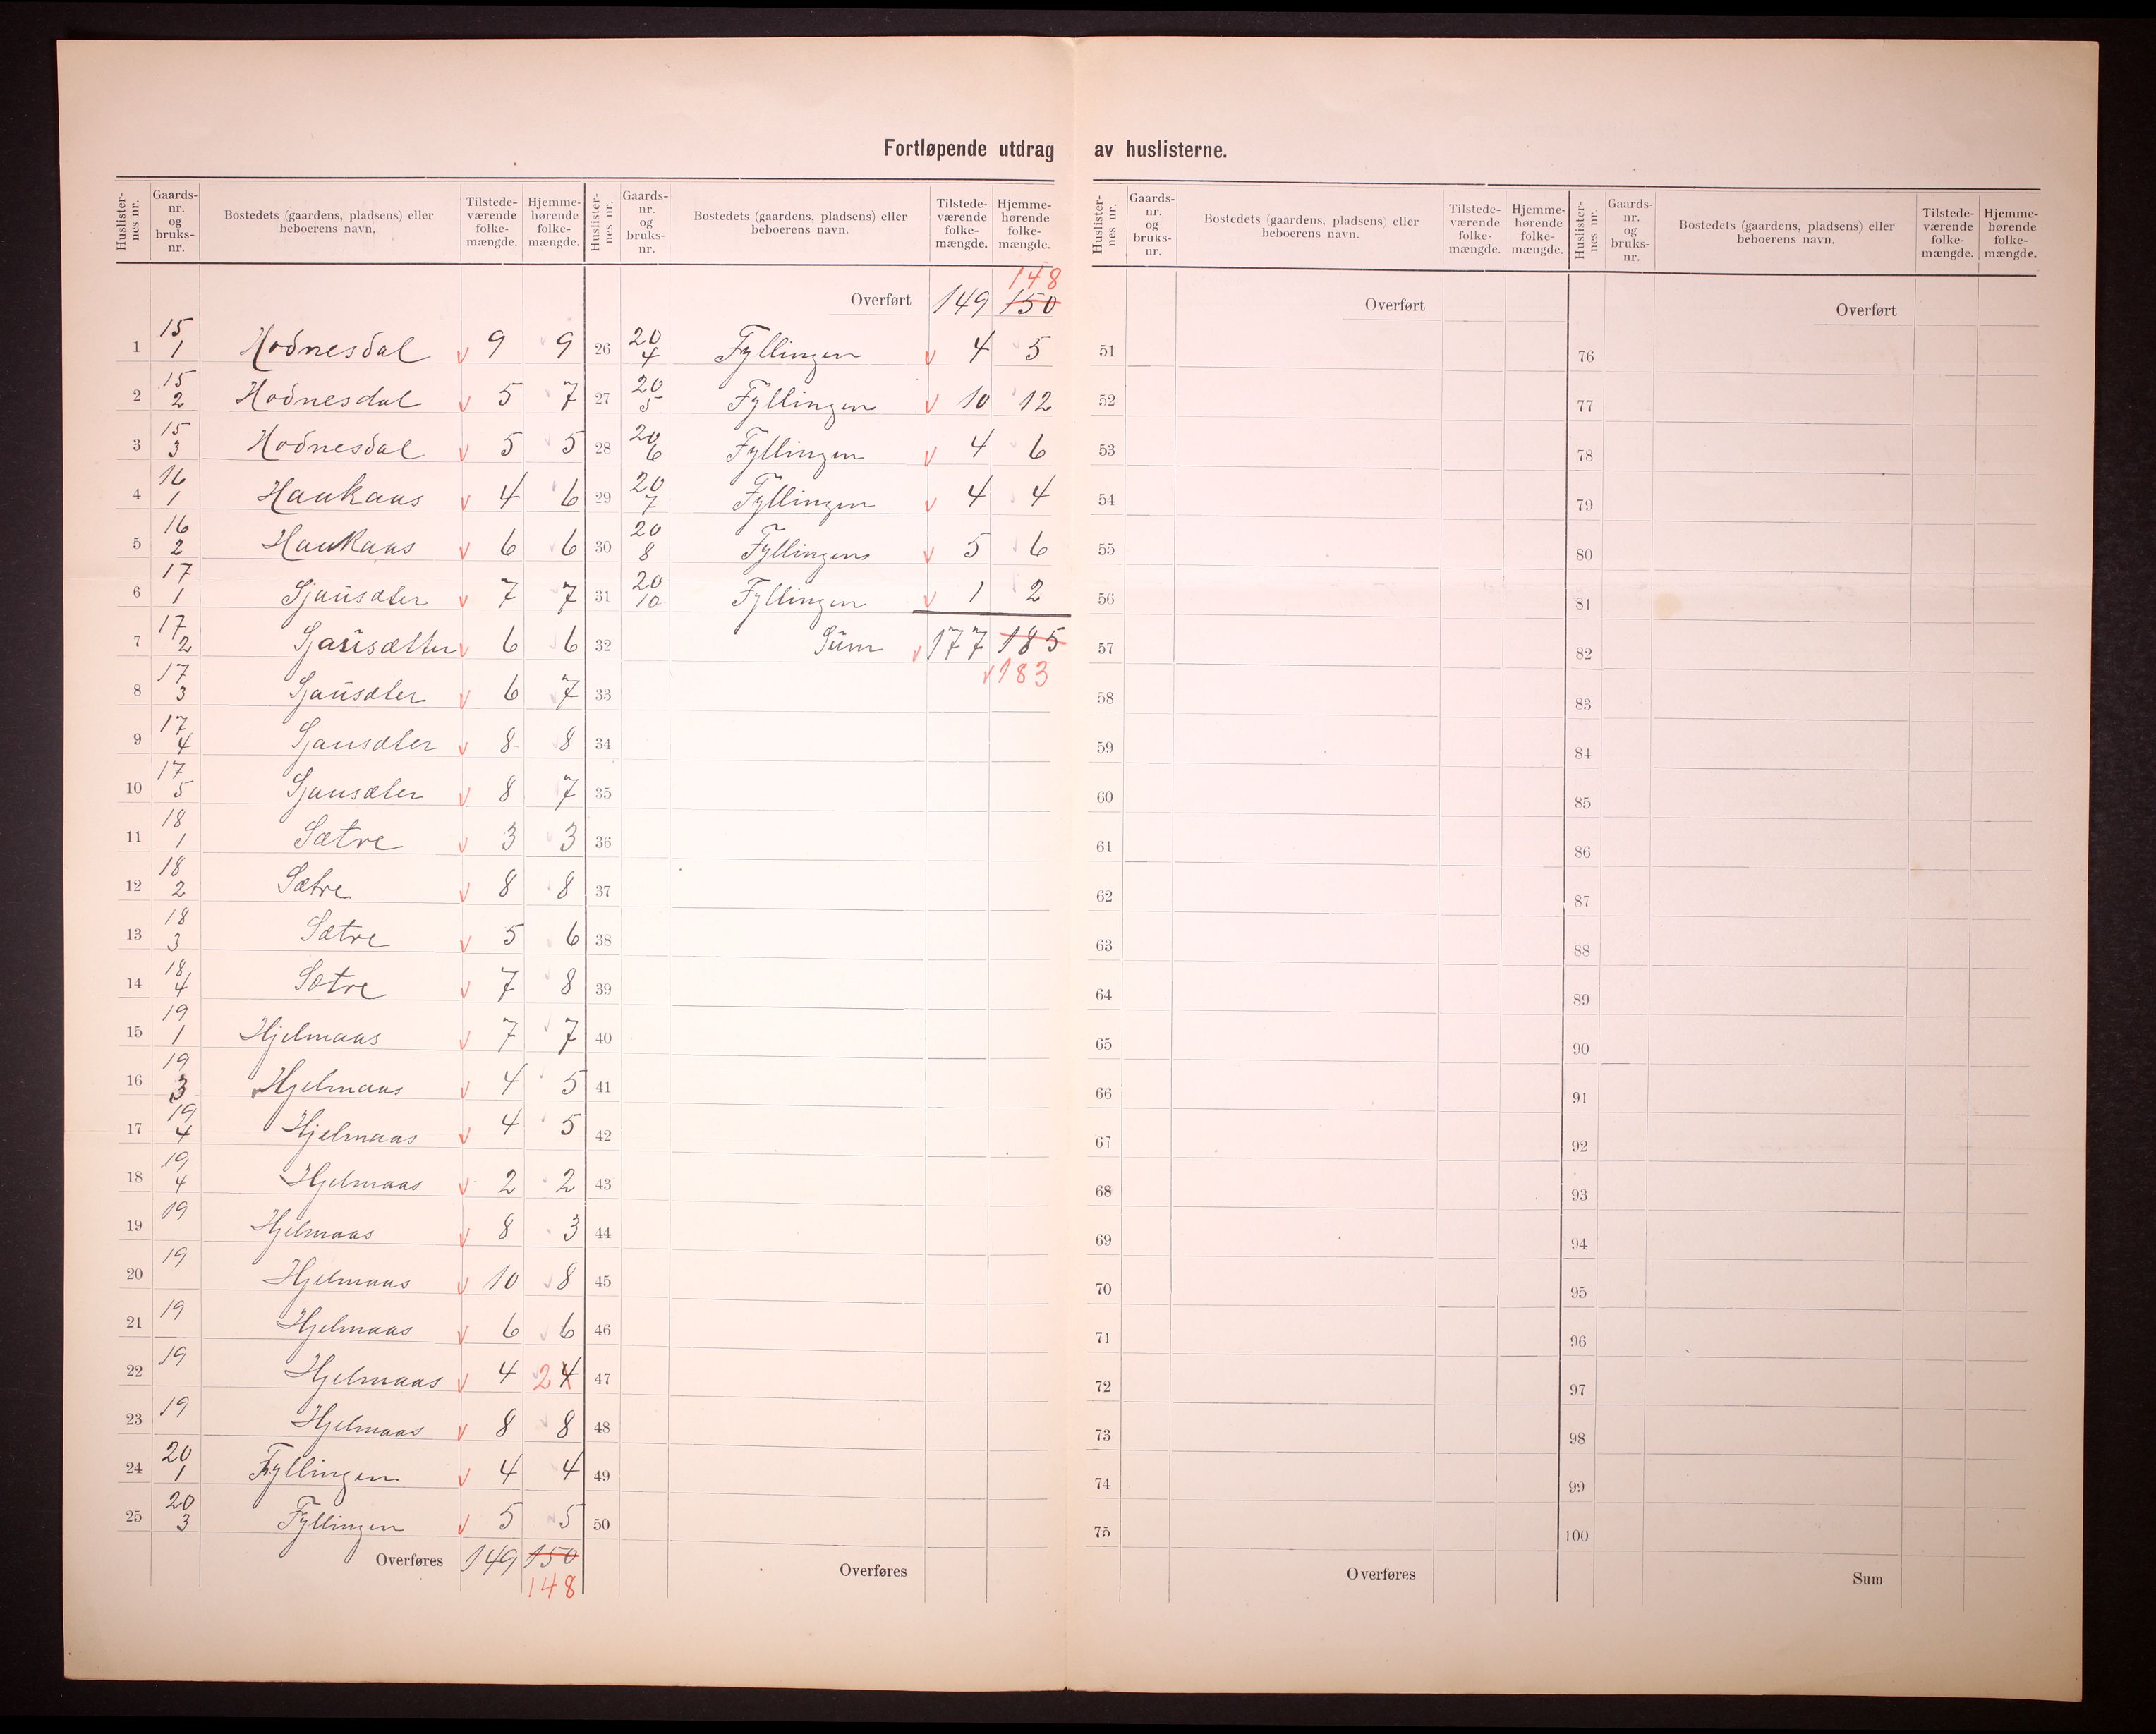 Fortløpende utdrag av huslisterne.
Huslisternes nr. Gaardsnr. og bruksnr. Bostedets (gaardens, pladsens) eller beboerens navn. Tilstedeværende folkemængde. Hjemmehørende folkemængde.
1 15 1 Hodnesdal v 9 9
2 15 2 Hodnesdal v 5 7
3 15 3 Hodnesdal v 5 5
4 16 1 Haukaas v 4 6
5 16 2 Haukaas v 6 6
6 17 1 Sjausæter v 7 7
7 17 2 Sjausætter v 6 6
8 17 3 Sjausæter v 6 7
9 17 4 Sjausæter v 8 8
10 17 5 Sjausæter v 8 7
11 18 1 Sætre v 3 3
12 18 2 Sætre v 8 8
13 18 3 Sætre v 5 6
14 18 4 Sætre v 7 8
15 19 1 Hjelmaas v 7 7
16 19 3 Hjelmaas v 4 5
17 19 4 Hjelmaas v 4 5
18 19 4 Hjelmaas v 2 2
19 19 Hjelmaas v 8 3
20 19 Hjelmaas v 10 8
21 19 Hjelmaas v 6 6
22 19 Hjelmaas v 4 2 4
23 19 Hjelmaas v 8 8
24 20 1 Fyllingen v 4 4
25 20 3 Fyllingen v 5 5
Overføres 149 150
148
Huslisternes nr. Gaardsnr. og bruksnr. Bostedets (gaardens, pladsens) eller beboerens navn. Tilstedeværende folkemængde. Hjemmehørende folkemængde.
148
Overført 149 150
26 20 4 Fyllingen v 4 5
27 20 5 Fyllingen v 10 12
28 20 6 Fyllingen v 4 6
29 20 7 Fyllingen v 4 4
30 20 8 Fyllingens v 5 6
31 20 10 Fyllingen v 1 2
32 Sum v 177 185
33 v 183
34
35
36
37
38
39
40
41
42
43
44
45
46
47
48
49
50
Overføres
Huslisternes nr. Gaardsnr. og bruksnr. Bostedets (gaardens, pladsens) eller beboerens navn. Tilstedeværende folkemængde. Hjemmehørende folkemængde.
Overført
51
52
53
54
55
56
57
58
59
60
61
62
63
64
65
66
67
68
69
70
71
72
73
74
75
Overføres
Huslisternes nr. Gaardsnr. og bruksnr. Bostedets (gaardens, pladsens) eller beboerens navn. Tilstedeværende folkemængde. Hjemmehørende folkemængde.
Overført
76
77
78
79
80
81
82
83
84
85
86
87
88
89
90
91
92
93
94
95
96
97
98
99
100
Sum